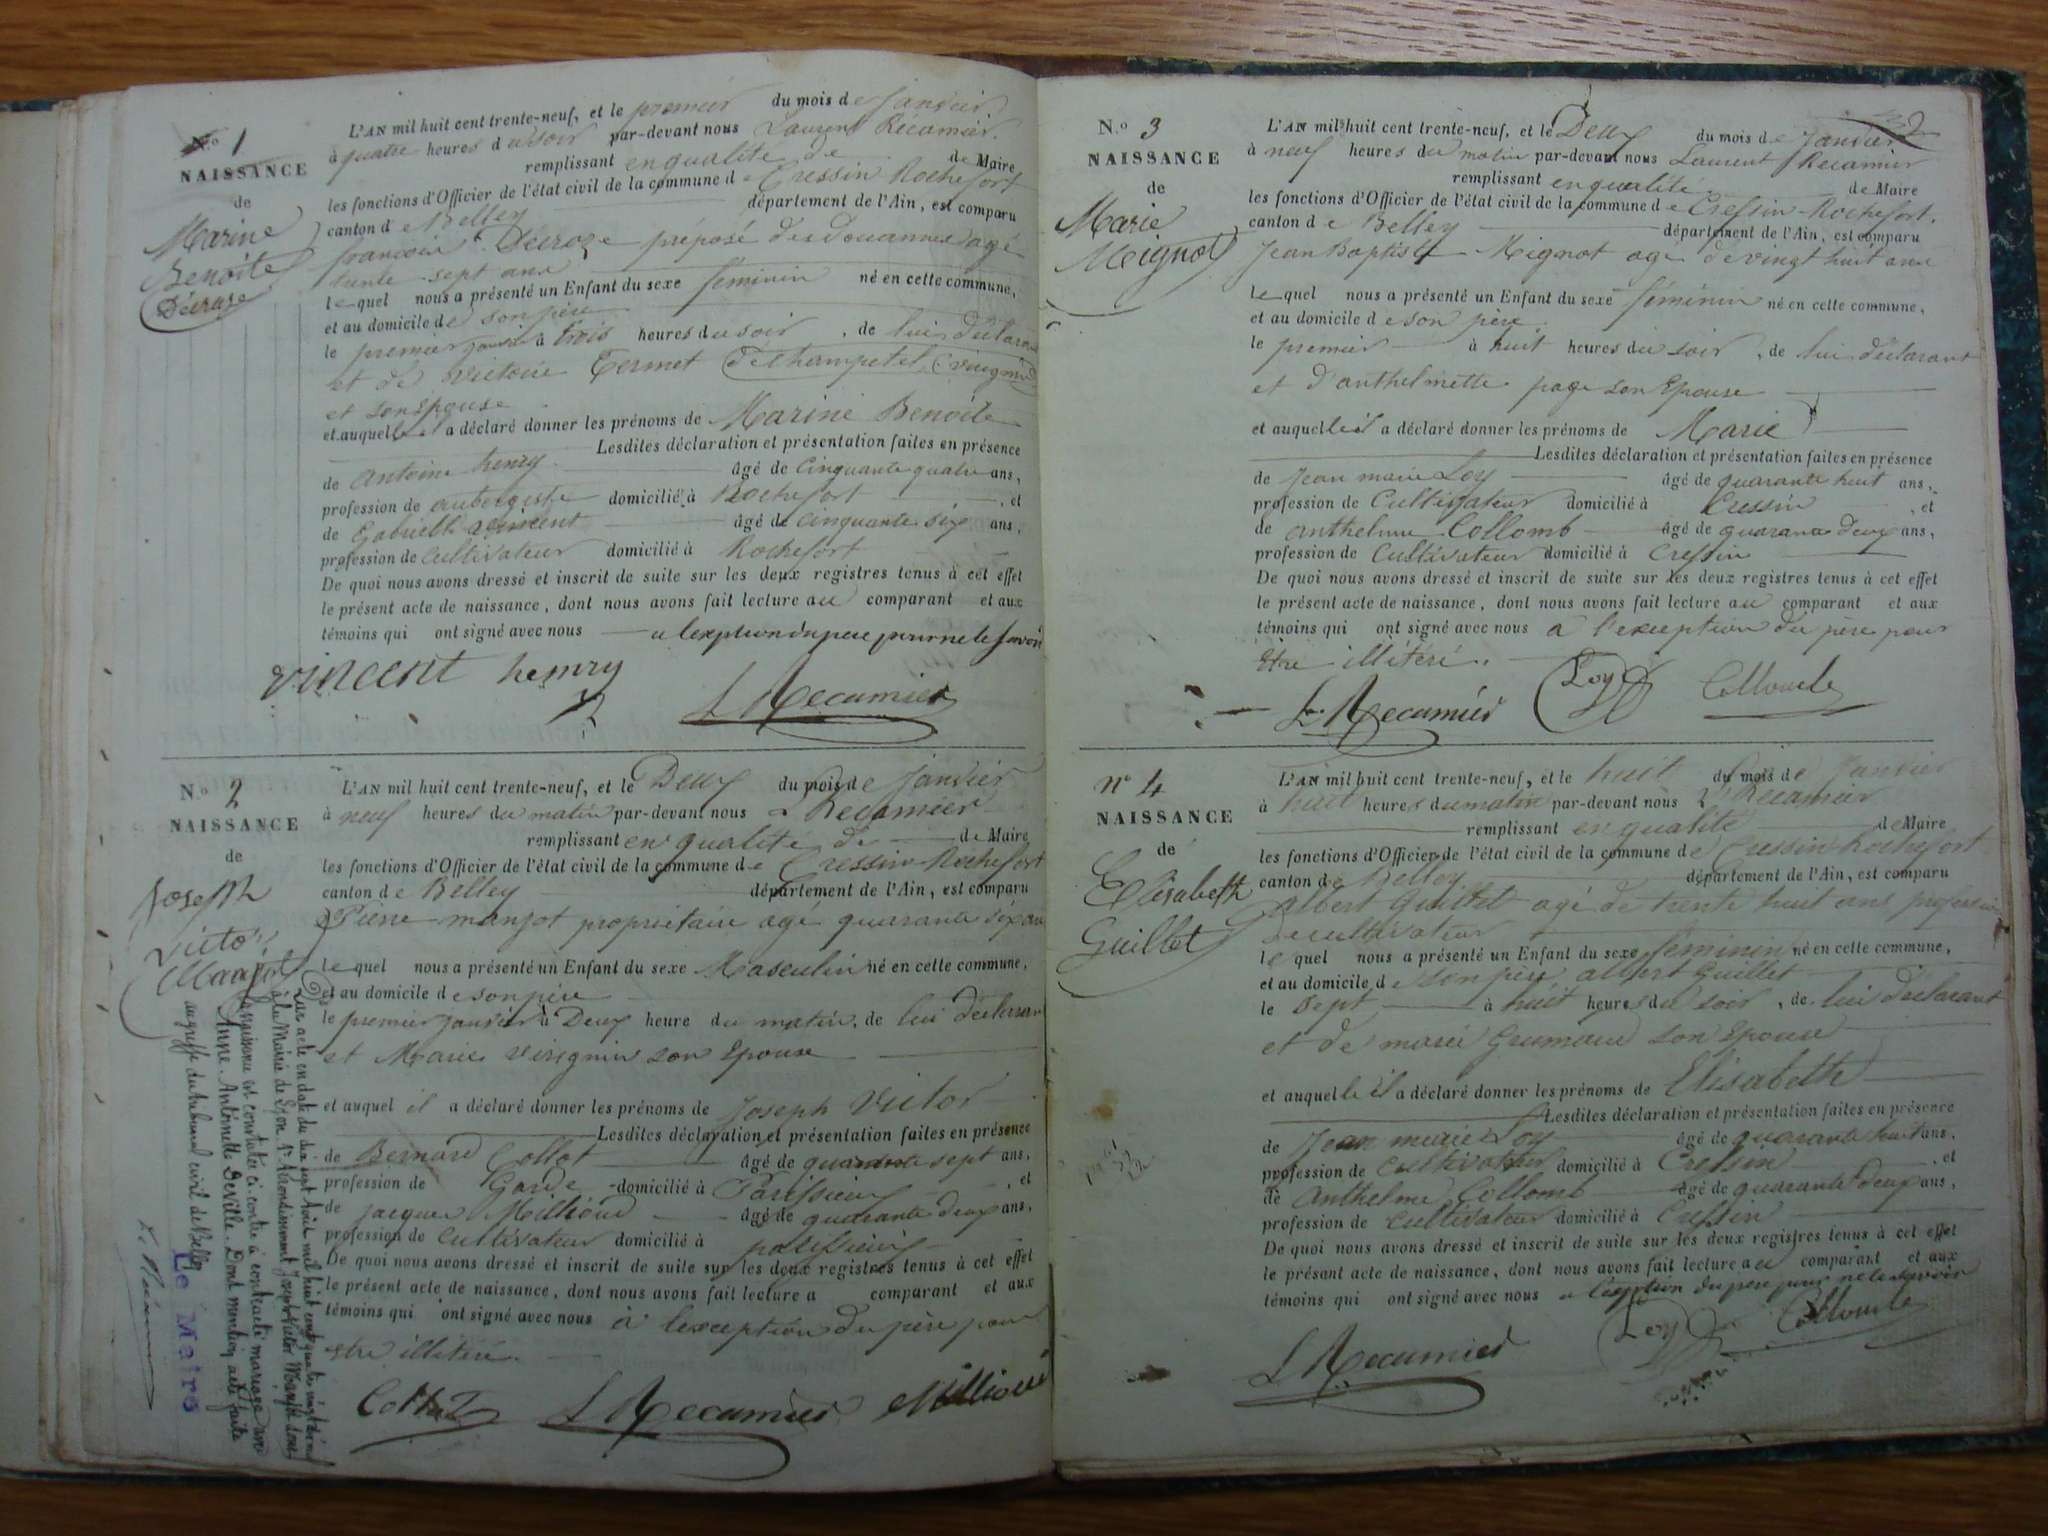 N.o 1
NAISSANCE
de
Marine
Benoîte
Décroze
L'AN mil huit cent trente-neuf, et le premier du mois de Janvier
à quatre heures du soir par-devant nous Laurent Récamier
remplissant en qualité de de Maire
les fonctions d'Officier de l'état civil de la commune de Cressin Rochefort
canton de Belley département de l'Ain, est comparu
françois Décroze préposé des douannes agé
trente-sept ans
lequel nous a présenté un Enfant du sexe féminin né en cette commune,
et au domicile de son père
le premier janvier à trois heures du soir, de lui déclarant
et de Victoire Termet
et son épouse
et auquel a déclaré donner les prénoms de Marine Benoite
Lesdites déclaration et présentation faites en présence
de Antoine henry âgé de Cinquante quatre ans,
profession de aubergiste domicilié à Rochefort, et
de Gabriel Vincent âgé de cinquante six ans,
profession de Cultivateur domicilié à Rochefort
De quoi nous avons dressé et inscrit de suite sur les deux registres tenus à cet effet
le présent acte de naissance, dont nous avons fait lecture au comparant et aux
témoins qui ont signé avec nous a lexeption du pere pour ne le savoir
Vincent henry L Recamier
N.o 2
NAISSANCE
de
Joseph
Victor
Manjot
L'AN mil huit cent trente-neuf, et le Deux du mois de Janvier
à neuf heures du matin par-devant nous L Recamier
remplissant en qualité de de Maire
les fonctions d'Officier de l'état civil de la commune de Cressin-Rochefort
canton de Belley département de l'Ain, est comparu
Pierre manjot propriétaire agé quarante six ans
lequel nous a présenté un Enfant du sexe Masculin né en cette commune,
et au domicile de son père
le premier janvier à Deux heure du matin, de lui déclarant
et Marie virignin son Epouse
et auquel il a déclaré donner les prénoms de Joseph Victor
Lesdites déclaration et présentation faites en présence
de Bernard Collot âgé de quarante sept ans,
profession de Garde domicilié à Parissieu, et
de jacques Millioud âgé de quarante deux ans,
profession de Cultivateur domicilié à parissieu
De quoi nous avons dressé et inscrit de suite sur les deux registres tenus à cet effet
le présent acte de naissance, dont nous avons fait lecture a comparant et aux
témoins qui ont signé avec nous à lexception du père pour
etre illitéré.
Collot L Recamier Millioud
Par acte en date du dix sept août mil huit cent quatre vingt
à la Mairie de Lyon 1er Arrondissement Joseph Victor Manjot dont
la naissance est constatée ci-contre à contracté mariage avec
Anne Antoinette Deville. Dont mention acte faite
au greffe du tribunal civil de Belley
Le Maire
N.o 3
NAISSANCE
de
Marie
Mignot
2
L'AN mil huit cent trente-neuf, et le Deux du mois de Janvier
à neuf heures du matin par-devant nous Laurent Recamier
remplissant en qualité de Maire
les fonctions d'Officier de l'état civil de la commune de Cressin-Rochefort.
canton de Belley département de l'Ain, est comparu
Jean Baptiste Mignot agé de vingt huit ans
lequel nous a présenté un Enfant du sexe féminin né en cette commune,
et au domicile de son père
le premier à huit heures du soir, de lui déclarant
et d'anthelmette page son Epouse
et auquel le il a déclaré donner les prénoms de Marie
Lesdites déclaration et présentation faites en présence
de Jean marie Loy âgé de quarante huit ans,
profession de Cultivateur domicilié à Cressin, et
de anthelme Collomb âgé de quarante deux ans,
profession de Cultivateur domicilié à Cressin
De quoi nous avons dressé et inscrit de suite sur les deux registres tenus à cet effet
le présent acte de naissance, dont nous avons fait lecture au comparant et aux
témoins qui ont signé avec nous a l'exception du père pour
être illitéré.
L Recamier Loy Collomb
n° 4
NAISSANCE
de
Elisabeth
Guillot
L'AN mil huit cent trente-neuf, et le huit du mois de Janvier
à huit heures du matin par-devant nous Lt Récamier
remplissant en qualité de Maire
les fonctions d'Officier de l'état civil de la commune de Cressin Rochefort
canton de Belley département de l'Ain, est comparu
albert Guillet agé de trente huit ans profession
de cultivateur
le quel nous a présenté un Enfant du sexe féminin né en cette commune,
et au domicile de son père albert Guillet
le sept à huit heures du soir, de lui déclarant
et de marie Grumaud son Epouse
et auquel le il a déclaré donner les prénoms de Elisabeth
Lesdites déclaration et présentation faites en présence
de Jean marie Loy âgé de quarante huit ans,
profession de cultivateur domicilié à Cressin, et
de Anthelme Collomb âgé de quarante deux ans,
profession de cultivateur domicilié à Cressin
De quoi nous avons dressé et inscrit de suite sur les deux registres tenus à cet effet
le présant acte de naissance, dont nous avons fait lecture au comparant et aux
témoins qui ont signé avec nous a lexeption du père pour ne le savoir
L Recamier Loy Collomb